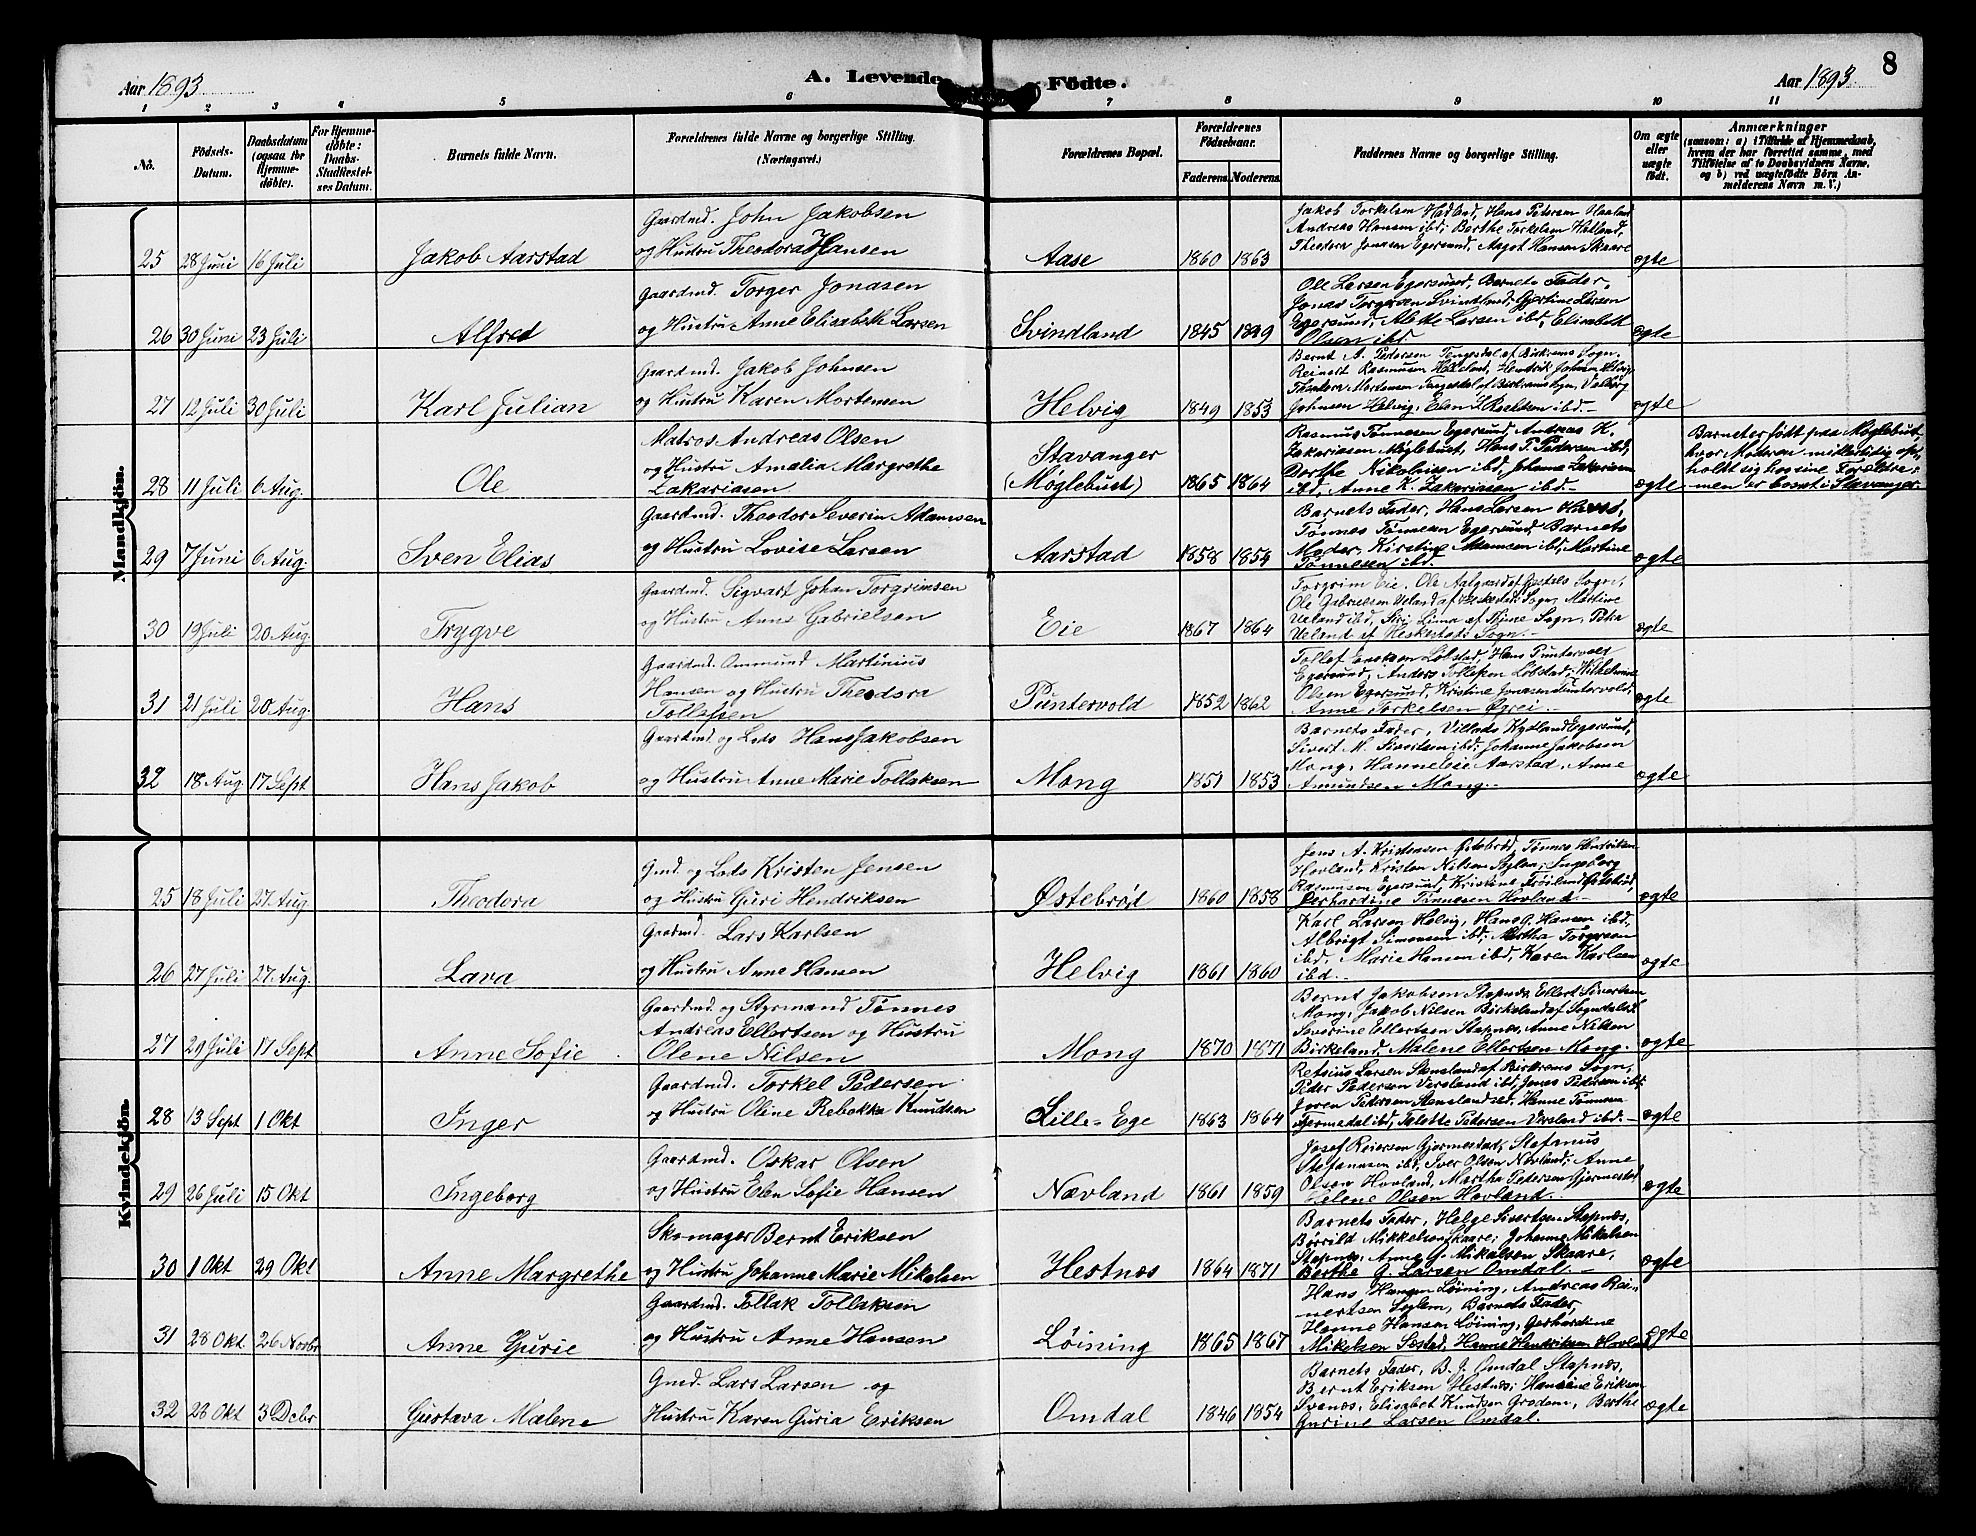 Aar 1893
A. Levende Födte.
Aar 1893.
8
1 2 3 4 5 6 7 8 9 10 11
No.
Födsels-
Datum.
Daabsdatum
(ogsaa for
Hjemme-
döbte).
For Hjemme-
döbte:
Daabs-
Stadfæstel-
ses Datum.
Barnets fulde Navn.
Forældrenes fulde Navne og borgerlige Stilling.
(Næringsvei.)
Forældrenes Bopæl.
Forældrenes
Födselsaar.
Faderens. Moderens.
Faddernes Navne og borgerlige Stilling.
Om ægte
eller
uægte
födt.
Anmærkninger
(saasom: a) i Tilfælde af Hjemmedaab,
hvem der har forrettet samme, med
Tilföielse af to Daabsvidners Navne,
og b) ved uægtefödte Börn An-
melderens Navn m. V.)
Mandkjön.
Gaardmd. John Jakobsen
Jakob Torkelsen Hadland, Hans Petersen Haaland
Andreas Hansen ibd; Berthe Torkelsen Hetland,
25 28 Juni 16 Juli Jakob Aarstad og Hustru Theodora Hansen Aase 1860 1863 Theodora Jonasen Egersund, Aagot Hansen Skaare ægte
Gaardmd. Torger Jonasen
Ole Larsen Egersund, Barnets Fader,
Jonas Torgersen Svindland, Gjertine Larsen
26 30 Juni 23 Juli Alfred og Hustru Anne Elisabeth Larsen Svindland 1845 1849 Egersund, Alette Larsen ibd, Elisabeth ægte
Olsen ibd
Gaardmd. Jakob Johnsen
Bernt A. Pedersen Tengesdal af Birkrems Sogn.
Reinert Rasmussen Helland, Hendrik Johnsen Helvig
Theodora Mortensen Tengesdal af Birkrems Sogn, Valborg
27 12 Juli 30 Juli Karl Julian og Hustru Karen Mortensen Helvig 1849 1853 Johnsen Helvig, Elen ibd.- ægte
Matros Andreas Olsen
Rasmus Tönnesen Egersund, Andreas K.
Zakariasen Möglebust, Hans P. Pedersen ibd,
og Hustru Amalia Margrethe Stavanger
Dorthe Nikolaisen ibd, Johanne Zakariasen
28 11 Juli 6 Aug. Ole Zakariasen (Möglebust) 1865 1864 ibd, Anne K. Zakariasen ibd.- ægte
Barnet er födt paa Möglebust,
hvor Moderen midlertidig op-
holdt sig hos sine Forældre,
men er bosat i Stavanger.
Gaardmd. Theodor Severin Adamsen
Barnets Fader, Hans Larsen
Tönnes Tönnesen Egersund, Barnets
29 7 Juni 6 Aug. Sven Elias og Hustru Lovise Larsen Aarstad 1858 1854 Moder, Kirstine Adamsen ibd, Martine ægte
Tönnesen ibd.
Gaardmd. Sigvart Johan Torgrimsen
Torgrim Eie, Ole Aalgaard af Gjestals Sogn,
Ole Gabrielsen Ueland af Heskestads Sogn, Martine
30 19 Juli 20 Aug. Trygve og Hustru Anne Gabrielsen Eie 1867 1864 Ueland ibd, Siri Lima af Thime Sogn, Petra ægte
Ueland af Heskestads Sogn.-
Gaardmd. Ommund Martinius
Tollef Eriksen Löbstad, Hans Puntervold
Hansen og Hustru Theodora
Egersund, Anders Tollefsen Löbstad, Wilhelmine
31 21 Juli 20 Aug. Hans Tollefsen Puntervold 1852 1862 Olsen Egersund, Kristine Jonasen Puntervold, ægte
Anne Torkelsen Øgrei.-
Gaardmd. og Lods Hans Jakobsen
Barnets Fader, Villads Kydland Egersund,
Sivert M. Sivertsen ibd; Johanne Jakobsen
32 18 Aug. 17 Sept Hans Jakob og Hustru Anne Marie Tollaksen Mong 1851 1853 Mong, Hanne Eie Aarstad, Anne ægte
Amundsen Mong.-
Kvindekjön.
Gmd. og Lods Kristen Jensen
Jens A. Kristensen Østebröd, Tönnes Hendriksen
Hovland, Kristen Nilsen Rylen; Ingeborg
25 18 Juli 27 Aug Theodora og Hustru Guri Hendriksen Østebröd 1860 1858 Rasmusen Egersund, Kristine Fröiland Østebröd, ægte
Gerhardine Tönnesen Hovland.-
Gaardmd. Lars Karlsen
Karl Larsen Helvig, Hans G. Hansen ibd,
Albrigt Simonsen ibd; Martha Torgersen
26 27 Juli 27 Aug. Lava og Hustru Anne Hansen Helvig 1861 1860 ibd, Marie Hansen ibd, Karen Karlsen ægte
ibd.-
Gaardmd. og Styrmand Tönnes
Bernt Jakobsen Stapnæs, Ellert Sivertsen
Andreas Ellertsen og Hustru
Mong, Jakob Nilsen Birkeland af Sogndalest
Severine Ellertsen Stapnæs, Anne Nilsen
27 29 Juli 17 Sept Anne Sofie Olene Nilsen Mong 1870 1871 Birkeland, Malene Ellertsen Mong. ægte
Gaardmd. Torkel Pedersen
Retsius Larsen Stensland af Birkrems Sogn,
Peder Pedersen Versland ibd, Jonas Pedersen ibd;
28 13 Sept 1 Okt Inger og Hustru Oline Rebekka Knudsen Lille-Ege 1863 1864 Joren Pedersen Stensland ibd, Hanne Tönnesen ægte
Tjermedal ibd, Talette Pedersen Versland ibd.-
Gaardmd. Oskar Olsen
Josef Reiersen Gjermestad, Stefanus
Stefanusen ibd, Iver Olsen Nævland; Anne
29 26 Juli 15 Okt Ingeborg og Hustru Elen Sofie Hansen Nævland 1861 1859 Olsen Hovland, Martha Petersen Gjermestad ægte
Helene Olsen Hovland.
Skomager Bernt Eriksen
Barnets Fader, Helge Sivertsen Stapnæs,
Börrild Mikkelsen Skaare; Johanne Mikalsen
30 1 Okt 29 Okt Anne Margrethe og Hustru Johanne Marie Mikalsen Hestnæs 1864 1871 Stapnæs, Anne G. Mikalsen Skaare, ægte
Berthe G. Larsen Omdal.-
Gaardmd. Tollak Tollaksen
Hans Hansen Löining, Andreas Rei-
nertsen Seglem, Barnets Fader,
31 28 Okt. 26 Novbr Anne Gurie og Hustru Anne Hansen Löining 1865 1867 Hanne Hansen Löining, Gerhardine ægte
Mikelsen Sæstad, Hanne Hendriksen Hovland
Gmd. Lars Larsen og
Barnets Fader, B. G. Omdal Stapnæs,
Bernt Eriksen Hestnæs; Hansine Eriksen
32 28 Okt 3 Decbr Gustava Malene Hustru Karen Guria Eriksen Omdal 1846 1854 Svanæs, Elisabet Knudsen Grödem, Berthe ægte
Gurine Larsen Omdal.